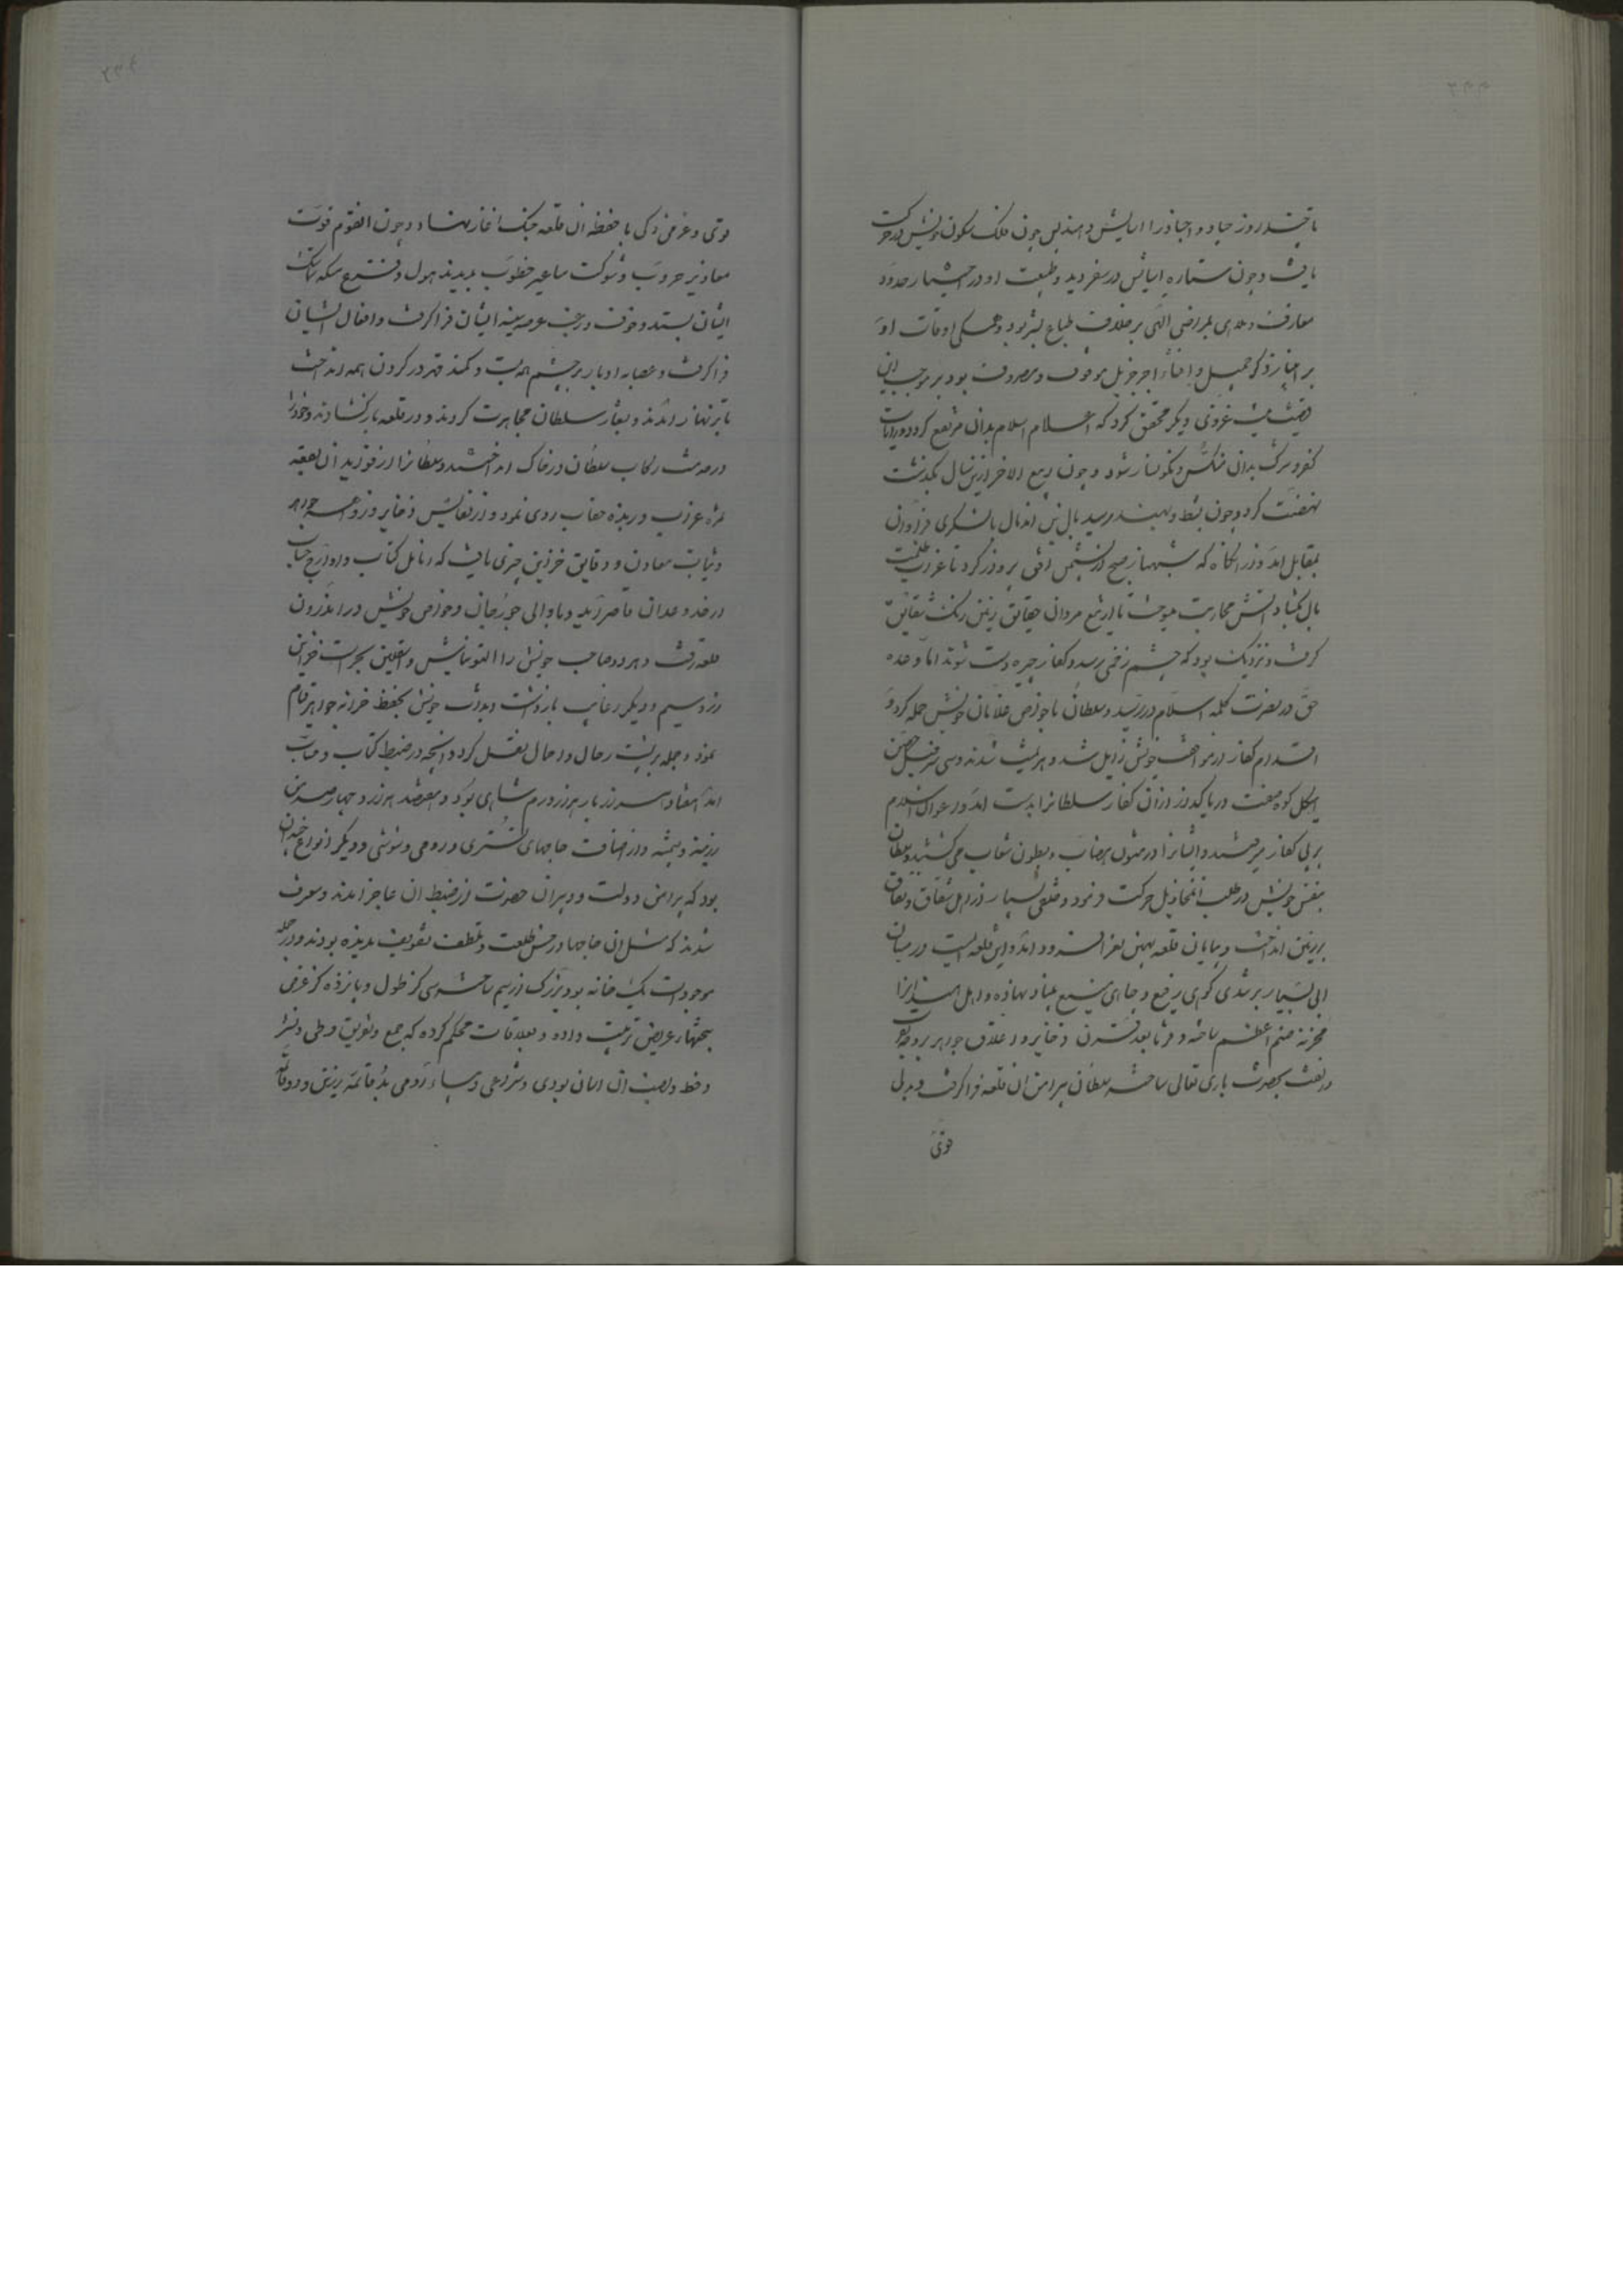 تا چند روز جیاد و اجناد را اسایش دهند پس چون فلک سکون خویش در حرکت
یافت و چون ستاره اسایش در سفر دید و طبیعت او در
معارف و مراضی الهی بر خلاف طباع بشر بود و همکی اوقات او
بر ذکر جمیل و اجر جزیل موقوف و مصروف بود بر موجب این
غزوتی دیکر محقق کرد که اعلام اسلام بدان مرتفع کردد و رایات
کفر و شرک بدان منکس و نکونسار شود و چون ربیع الاخر ازین سال بکذشت
نهضت کرد و چون بشط ویهند رسید بال بن اندبال با لشکری فراوان
بمقابل امد و از انکاه که شهباز صبح از نشیمن افق پرواز کرد تا غراب ظلمت
بال بکشاد اتش محاربت میسوخت تا از تیغ مردان زمین رنک شقایق
کرفت و نزدیک بود که چشم زخمی رسد و کفار چیره دست شوند اما وعده
حق در نصرت کلمه اسلام در رسید و سلطان با خواص غلامان خویش حمله کرد و
اقدام کفار از مواقف خویش زایل شد و هزیمت شدند و سی سر فیل حصین
هیکل کوه صفت دریا کذر از ان کفار سلطانرا بدست امد و اعوان اسلام
بر پی کفار میرفتند و ایشانرا در متون هضاب و بطون شعاب می کشتند و سلطان
بنفس خویش در طلب ان مخاذیل حرکت فرمود و خلقی بسیار از اهل شقاق و نفاق
بر زمین انداخت و بپایان قلعه بهیم نغر فرود امد و این قلعه ایست در میان
ابی بسیار بر تندی کوهی رفیع و جای منیع بنیاد نهاده و اهل هند انرا
مخزن صنم اعظم ساخته و قرنا بعد قرن ذخایر و اعلاق جواهر بر وجه تقرب
و زلفت بحضرت باری تعالی ساخته سلطان پیرامن ان قلعه فرا کرفت و بدلی
قوی
قوی و عزمی زکی با حفظه ان قلعه جنک اغاز نهاد و چون انقوم قوت
معاونیر حروب و شوکت مساعیر خطوب بدیدند هول و فزع سکه
ایشان بستد و خوف و رعب عرصه سینه ایشان فرا کرفت و
فرا کرفت و عصابه ادبار بر چشم همه بست و کمند قهر در کردن همه انداخت
تا زنهار و بشعار سلطان مجاهرت کردند و در قلعه باز کشادند و خود را
در خدمت رکاب سلطان در خاک انداختند و سلطانرا از فواید ان بقعه
ثمره غراب و زبده حقاب روی نمود و از نفایس ذخایر و زواهر جواهر
و نبات معادن و دقایق خزاین چیزی یافت که انامل کتاب و اوراج حساب
از حد و عد ان قاصر اید و با والی جوزجان و خواص خویش در اندرون
قلعه رفت و هر دو حاجب خویش را التونتاش و اسغتکین بحراست خزاین
زر و سیم و دیکر رغایب باز داشت و بذات خویش بحفظ خزانه جواهر قیام
نمود و جمله بر پشت رحال و اجمال نقل کرد و انچه در ضبط کتاب و حساب
امد هفتاد بار هزار هزار درم شاهی بود و هفتصد هزار و چهارصد من
زرینه و سیمینه و از اصناف جامهای تستری و رومی و سوسی و دیکر انواع چندان
بود که پیران دولت و دبیران حضرت از ضبط ان عاجز امدند و معترف
شدند که مثل ان جامها در حسن صنعت و لطف ندیده بودند و در جمله
موجودات یک خانه بود بزرک از سیم ساخته سی کز طول و پانزده کز عرض
بتختهاء عریض ترتیب داده و بعلاقات محکم کرده که جمع و تفریق و طی و نشر
و حط و نصب ان اسان بودی و شراعی از دیباء رومی بدو قایمه زرین و دو قایمه